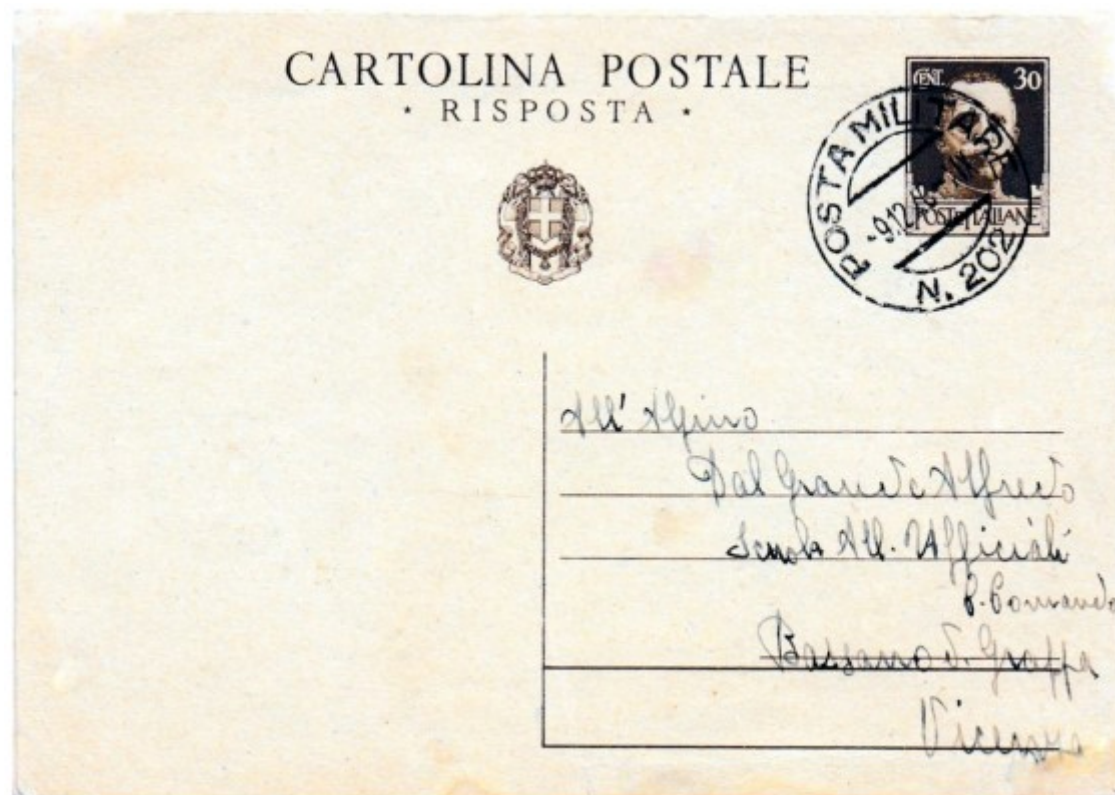 CARTOLINA POSTALE
· RISPOSTA ·
CENT. 30
POSTE ITALIANE
POSTA MILITARE
-9.12.
N. 202
All' Alpino
Dal Grande Alfredo
Scuola All. Ufficiali
C. Comando
Bassano d. Grappa
Vicenza